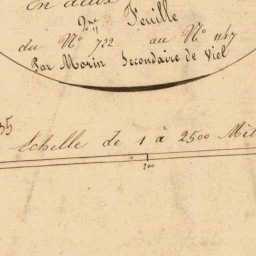 En deux
2me Feuille
du No 732 au No 1167
Par Morin Secondaire de Viel
35
Echelle de 1 à 2500 Mèt
200